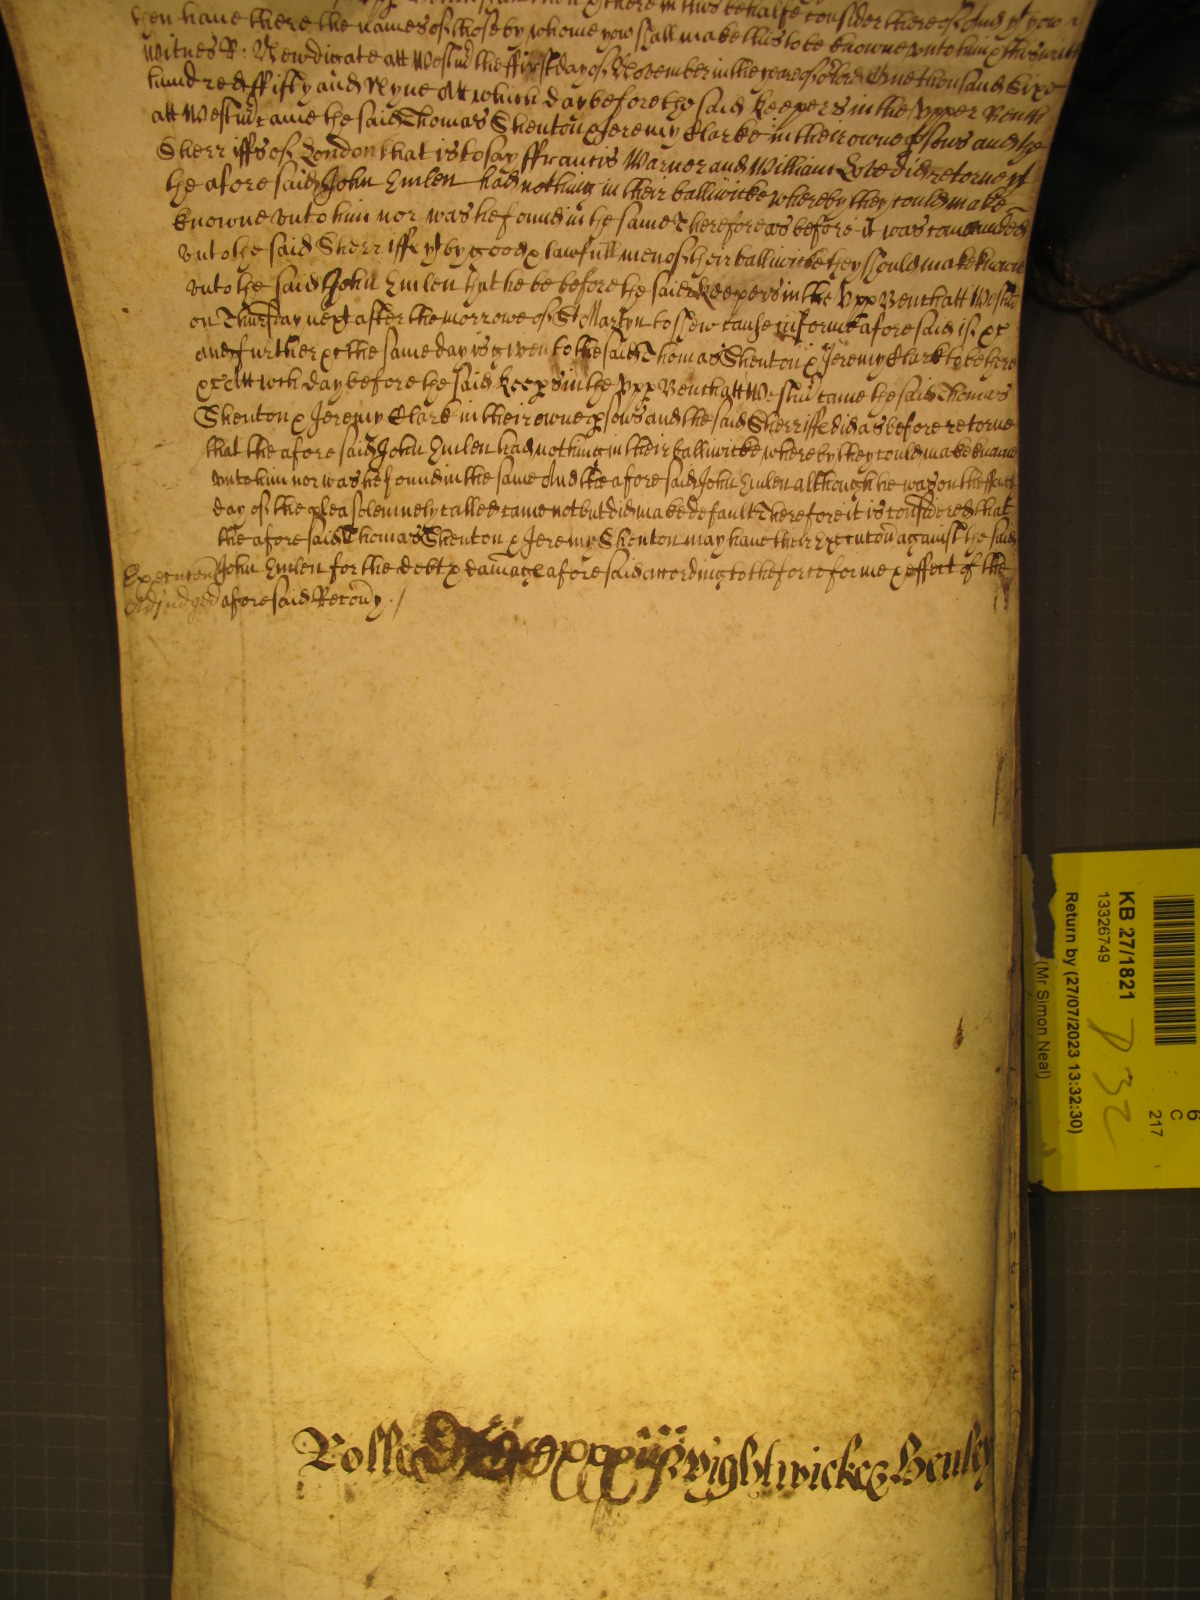 then have there the names of those by whome yow shall make this to be knowne unto him & this writt
Witnes R: Newdigate att Westmr the ffirst day of November in the yeare of or lord One thousand Sixe
hundred ffifty and Nyne Att which day before the said Keepers in the Upper Bench
att Westmr came the said Thomas Shenton & Jeremy Clarke in their owne psons and the
Sherriffs of London that is to say ffrancis Warner and William Love did retorne yt
the aforesaid John Emlen had nothing in their balliwicke whereby they could make
knowne unto him nor was he found in the same Therefore as before it was comaunded
unto the said Sherriffe yt by good & lawfull men of their balliwicke they should make knowne
unto the said John Emlen that he be before the said Keepers in the Upp Bench att Westmr
on Thursday next after the morrowe of St Martyn to shew cause in forme aforesaid if &c
and further &c the same day is given to the said Thomas Shenton & Jeremy Clark to be there
&c Att wch day before the said Keeps in the Upp Bench att Westmr came the said Thomas
Shenton & Jeremy Clark in their owne psons and the said Sherriffe did as before retorne
that the aforesaid John Emlen had nothing in their balliwicke whereby they could make knowne
unto him nor was he found in the same And the aforesaid John Emlen although he was on the
day of the plea solemnely called came not but did make default Therefore it is considered that
the aforesaid Thomas Shenton & Jeremy Shenton may have their Execucon against the said
Execucon John Emlen for the debt & damage aforesaid according to the force forme & effect of the
Adjudged aforesaid Recovy
Rolle xxxij Wightwicke & Henley
KB 27/1821
13326749
Return by (27/07/2023 13:32:30)
(Mr Simon Neal)
6
C
217
P 32